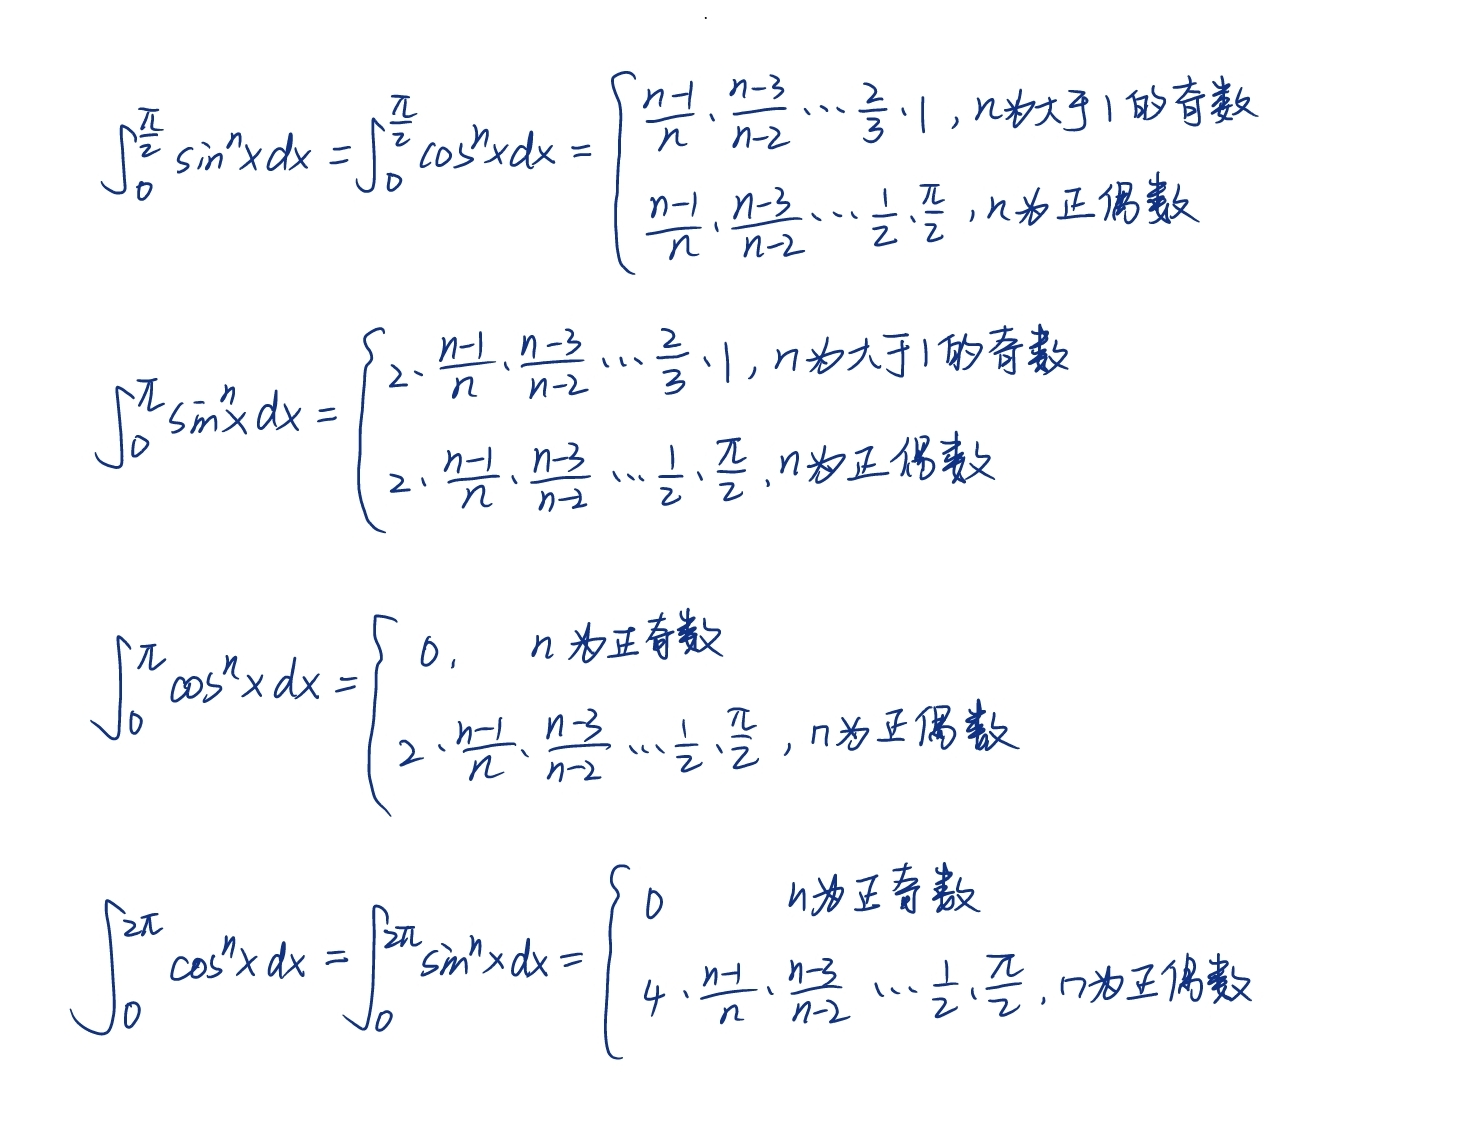 $\int_0^{\frac{\pi}{2}} \sin^n x dx = \int_0^{\frac{\pi}{2}} \cos^n x dx = \begin{cases} \frac{n-1}{n} \cdot \frac{n-3}{n-2} \cdots \frac{2}{3} \cdot 1, n为大于1的奇数 \\ \frac{n-1}{n} \cdot \frac{n-3}{n-2} \cdots \frac{1}{2} \cdot \frac{\pi}{2}, n为正偶数 \end{cases}$
$\int_0^{\pi} \sin^n x dx = \begin{cases} 2 \cdot \frac{n-1}{n} \cdot \frac{n-3}{n-2} \cdots \frac{2}{3} \cdot 1, n为大于1的奇数 \\ 2 \cdot \frac{n-1}{n} \cdot \frac{n-3}{n-2} \cdots \frac{1}{2} \cdot \frac{\pi}{2}, n为正偶数 \end{cases}$
$\int_0^{\pi} \cos^n x dx = \begin{cases} 0, \quad n为正奇数 \\ 2 \cdot \frac{n-1}{n} \cdot \frac{n-3}{n-2} \cdots \frac{1}{2} \cdot \frac{\pi}{2}, n为正偶数 \end{cases}$
$\int_0^{2\pi} \cos^n x dx = \int_0^{2\pi} \sin^n x dx = \begin{cases} 0 \quad n为正奇数 \\ 4 \cdot \frac{n-1}{n} \cdot \frac{n-3}{n-2} \cdots \frac{1}{2} \cdot \frac{\pi}{2}, n为正偶数 \end{cases}$